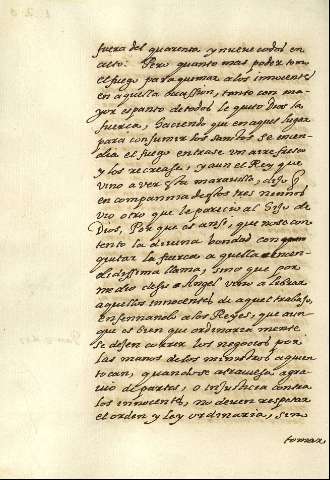 fuera del quarenta y nueve codos en
alto: Pero quanto mas poder tom
el fuego para quemar a los innocentes
en aquella ocassion, tanto con ma
yor espanto de todos le quito Dios la
fuerça, haciendo que en aquel lugar
para consumir los santos se encen
dia el fuego entrase un aire fresco
y los recrease, y aun el Rey que
vino a ver esta maravilla, dijo q
en compannia de estos tres ninnos
vio otro que le parecio al Hijo de
Dios, Per que es ansi, que no se con
tento la divina bondad con
quitar la fuerça a aquella encen
didissima llama, sino que por
medio de su Angel vino a librar
aquellos innocentes de aquel trabajo,
ensennando a los Reyes, que aun
que es bien que ordinaria mente
se dejen correr los negocios por
las manos de los ministros a quien
tocan, quando se atraviesa agra
vio de partes, o injusticia contra
los innocentes, no deven respetar
el orden y ley ordinaria, sino
tomar